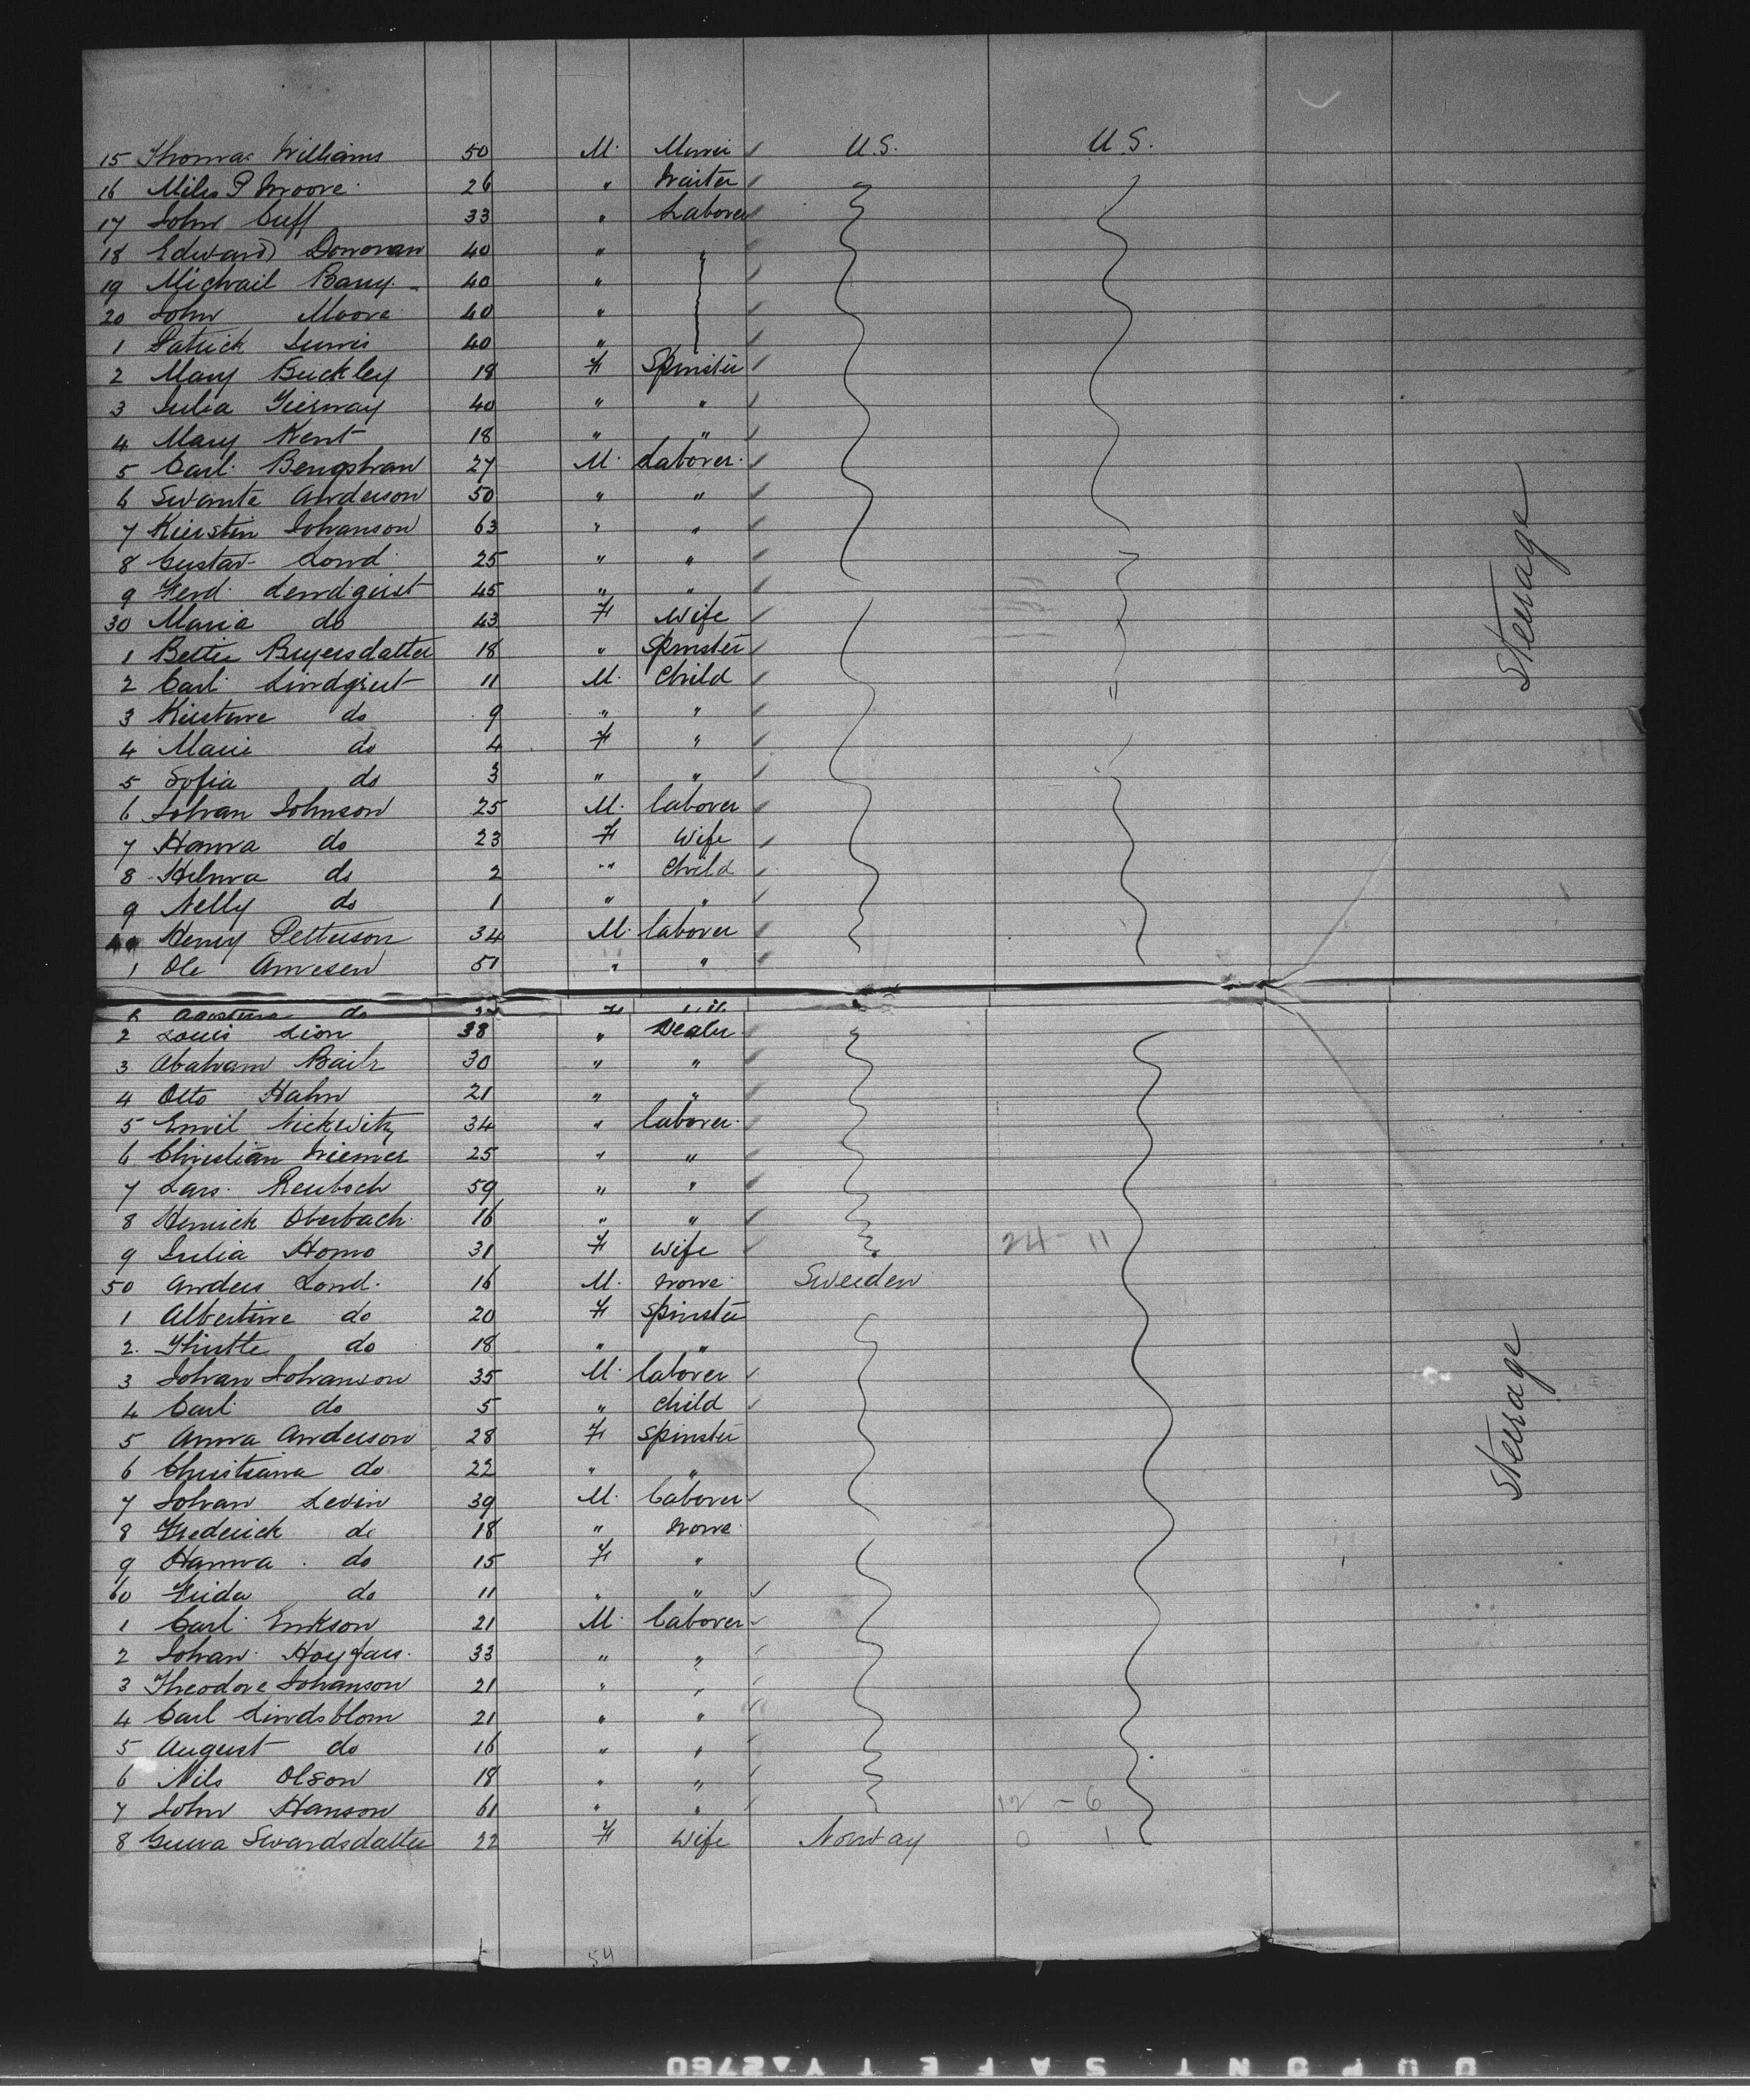 15 Thomas Williams 50 M. U.S. U.S.
16 Miles P Moore 26 " Waiter
17 John Cuff 33 " Laborer
18 Edward Donovan 40 "
19 Michail Barry 40 "
20 John Moore 40 "
1 Patrick 40 "
2 Mary Buckley 18 F Spinster
3 Julia 40 " "
4 Mary Kent 18 " "
5 Carl Bengstran 27 M. Laborer
6 Swante Anderson 50 " "
7 Kierstin Johanson 63 " "
8 Gustav Lond 25 " "
9 Ferd. Lendquist 45 " "
30 Maria do 43 F Wife
1 Bettie Bryersdatter 18 " Spinster
2 Carl Lindqiust 11 M. Child
3 Kiestine do 9 " "
4 Marie do 4 F "
5 Sofia do 3 " "
6 Johan Johnson 25 M. laborer
7 Hanna do 23 F Wife
8 Hilma do 2 " Child
9 Nelly do 1 " "
Henry Petterson 34 M. laborer
1 Ole Arnesen 51 " "
do F
2 Louis Lion 38 " Dealer
3 Abaham 30 " "
4 Otto Hahn 21 " "
5 Emil Nickwitz 34 " laborer
6 Christian Niemer 25 " "
7 Lars Reuboch 59 " "
8 Henrick Oberbach 16 " "
9 Julia Homo 31 F Wife 24 - 11
50 Anders Lond. 16 M. None Sweeden
1 Albertine do 20 F Spinster
2 do 18 " "
3 Johan Johanson 35 M. laborer
4 Carl do 5 " Child
5 Anna Anderson 28 F Spinster
6 Christiana do 22 " "
7 Johan Levin 39 M. Laborer
8 Frederick do 18 " None
9 Hanna do 15 F "
60 Frida do 11 " "
1 Carl Erikson 21 M. Laborer
2 Johan 33 " "
3 Theodore Johanson 21 " "
4 Carl Lindsblom 21 " "
5 August do 16 " "
6 Nils Olson 18 " "
7 John Hanson 61 " " 12 - 6
8 Swardsdatter 22 F Wife Norway 0 1
Steerage
Steerage
54
DUPONT SAFETY 2760